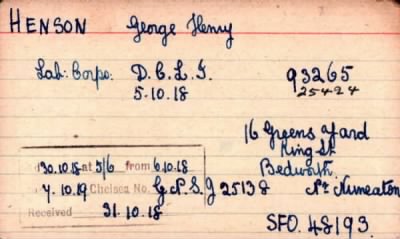 HENSON George Henry
Lab: Corps: D.C.L.I. 93265
5.10.18 25424
16 Greens Yard
King St
Bedworth.
Nr Nuneaton
30.10.18 at 5/6 from 6.10.18
7.10.19 Chelsea No. 25138
Received 31.10.18
SFO. 48193.